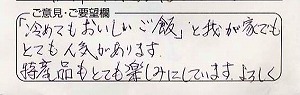 ご意見・ご要望欄
「冷めてもおいしいご飯」と我が家でも
とても人気があります。
特産品もとても楽しみにしています よろしく